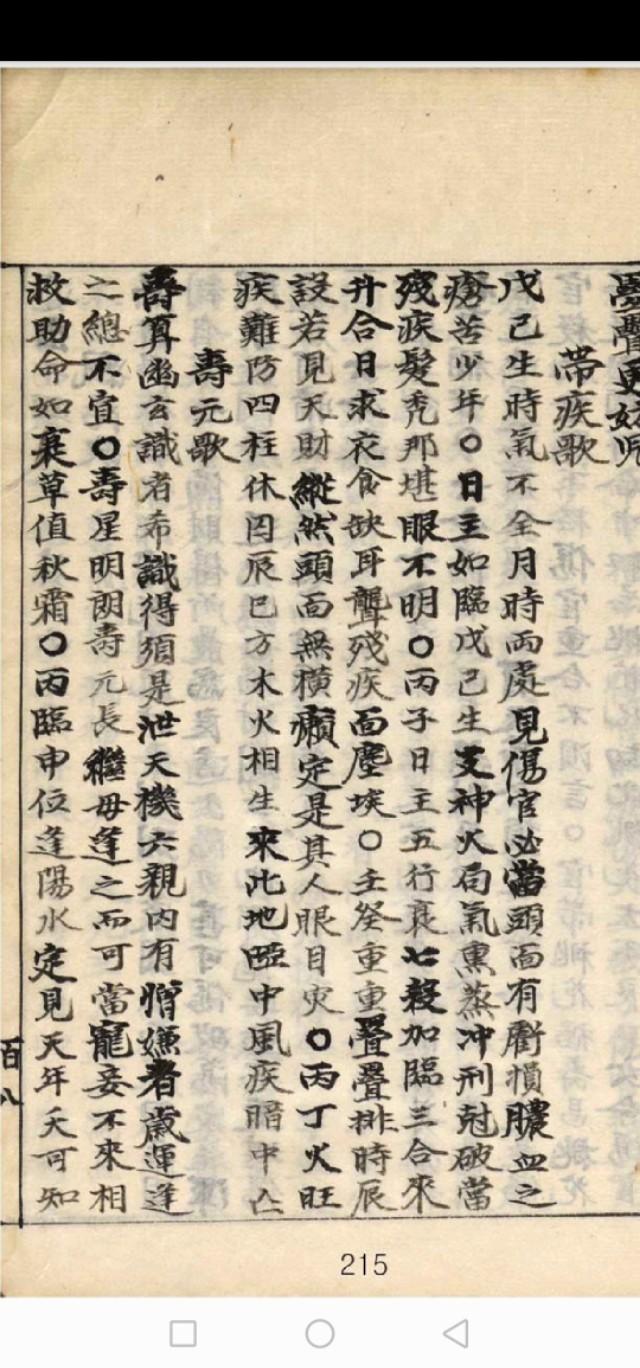 疊更妨兒
帶疾歌
戊己生時氣不全月時兩處見傷官必當頭面有虧損膿血之
瘡苦少年○日主如臨戊己生支神火局氣熏蒸冲刑尅破當
殘疾髮禿那堪眼不明○丙子日主五行衰七殺加臨三合來
升合日求衣食缺耳聾殘疾面塵埃○壬癸重重疊疊排時辰
設若見天財縱然頭面無横癩定是其人眼目灾○丙丁火旺
疾難防四柱休囚辰巳方木火相生來此地瘂中風疾暗中亡
壽元歌
壽算幽玄識者希識得須是泄天機六親内有憎嫌者歲運逢
之總不宜○壽星明朗壽元長繼母逢之而可當寵妾不來相
救助命如衰草值秋霜○丙臨申位逢陽水定見天年夭可知
百八
215